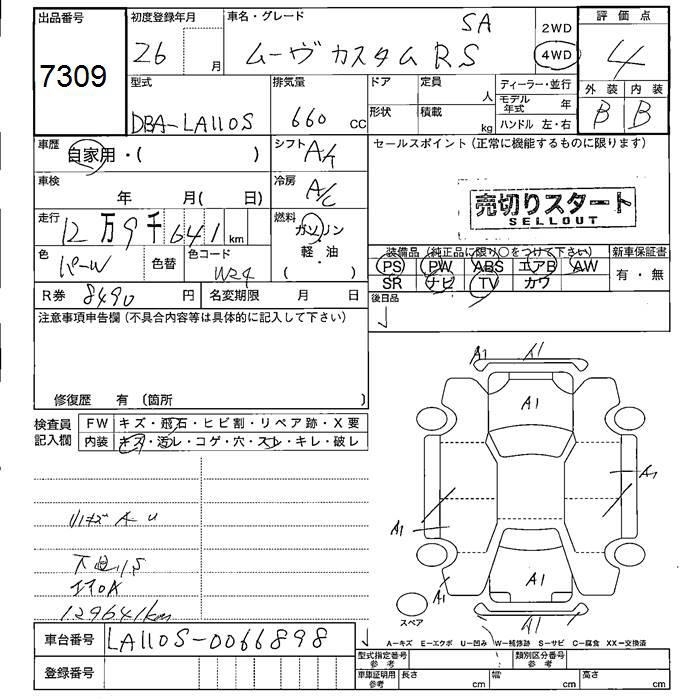 出品番号
7309
初度登録年月
26 月
車名・グレード
SA
ムーヴ カスタム RS
2WD
4WD
評価点
4
外装 内装
B B
型式
DBA-LA110S
排気量
660 cc
ドア
定員
人
形状
積載
kg
ディーラー・並行
モデル年式 年
ハンドル 左・右
車歴
自家用・( )
シフト
A/t
セールスポイント(正常に機能するものに限ります)
売切りスタート
SELLOUT
車検
年 月( 日)
冷房
A/C
走行
12万9千641km
燃料
ガソリン
軽・油
( )
色
パール
色替
色コード
W24
装備品(純正品に限り○をつけて下さい)
PS PW ABS エアB AW
SR ナビ TV カワ
新車保証書
有・無
R券 8490 円
名変期限 月 日
後日品
注意事項申告欄(不具合内容等は具体的に記入して下さい)
修復歴 有(箇所 )
検査員記入欄
FW キズ・飛石・ヒビ割・リペア跡・X要
内装 キズ・汚レ・コゲ・穴・スレ・キレ・破レ
129641km
A1 A1
A1
A1
A1
A1
A1
スペア
A-キズ E-エクボ U-凹み W-補修跡 S-サビ C-腐食 XX-交換済
車台番号 LA110S-0066898
登録番号
型式指定番号 参考
類別区分番号 参考
車庫証明用 参考
長さ cm 幅 cm 高さ cm